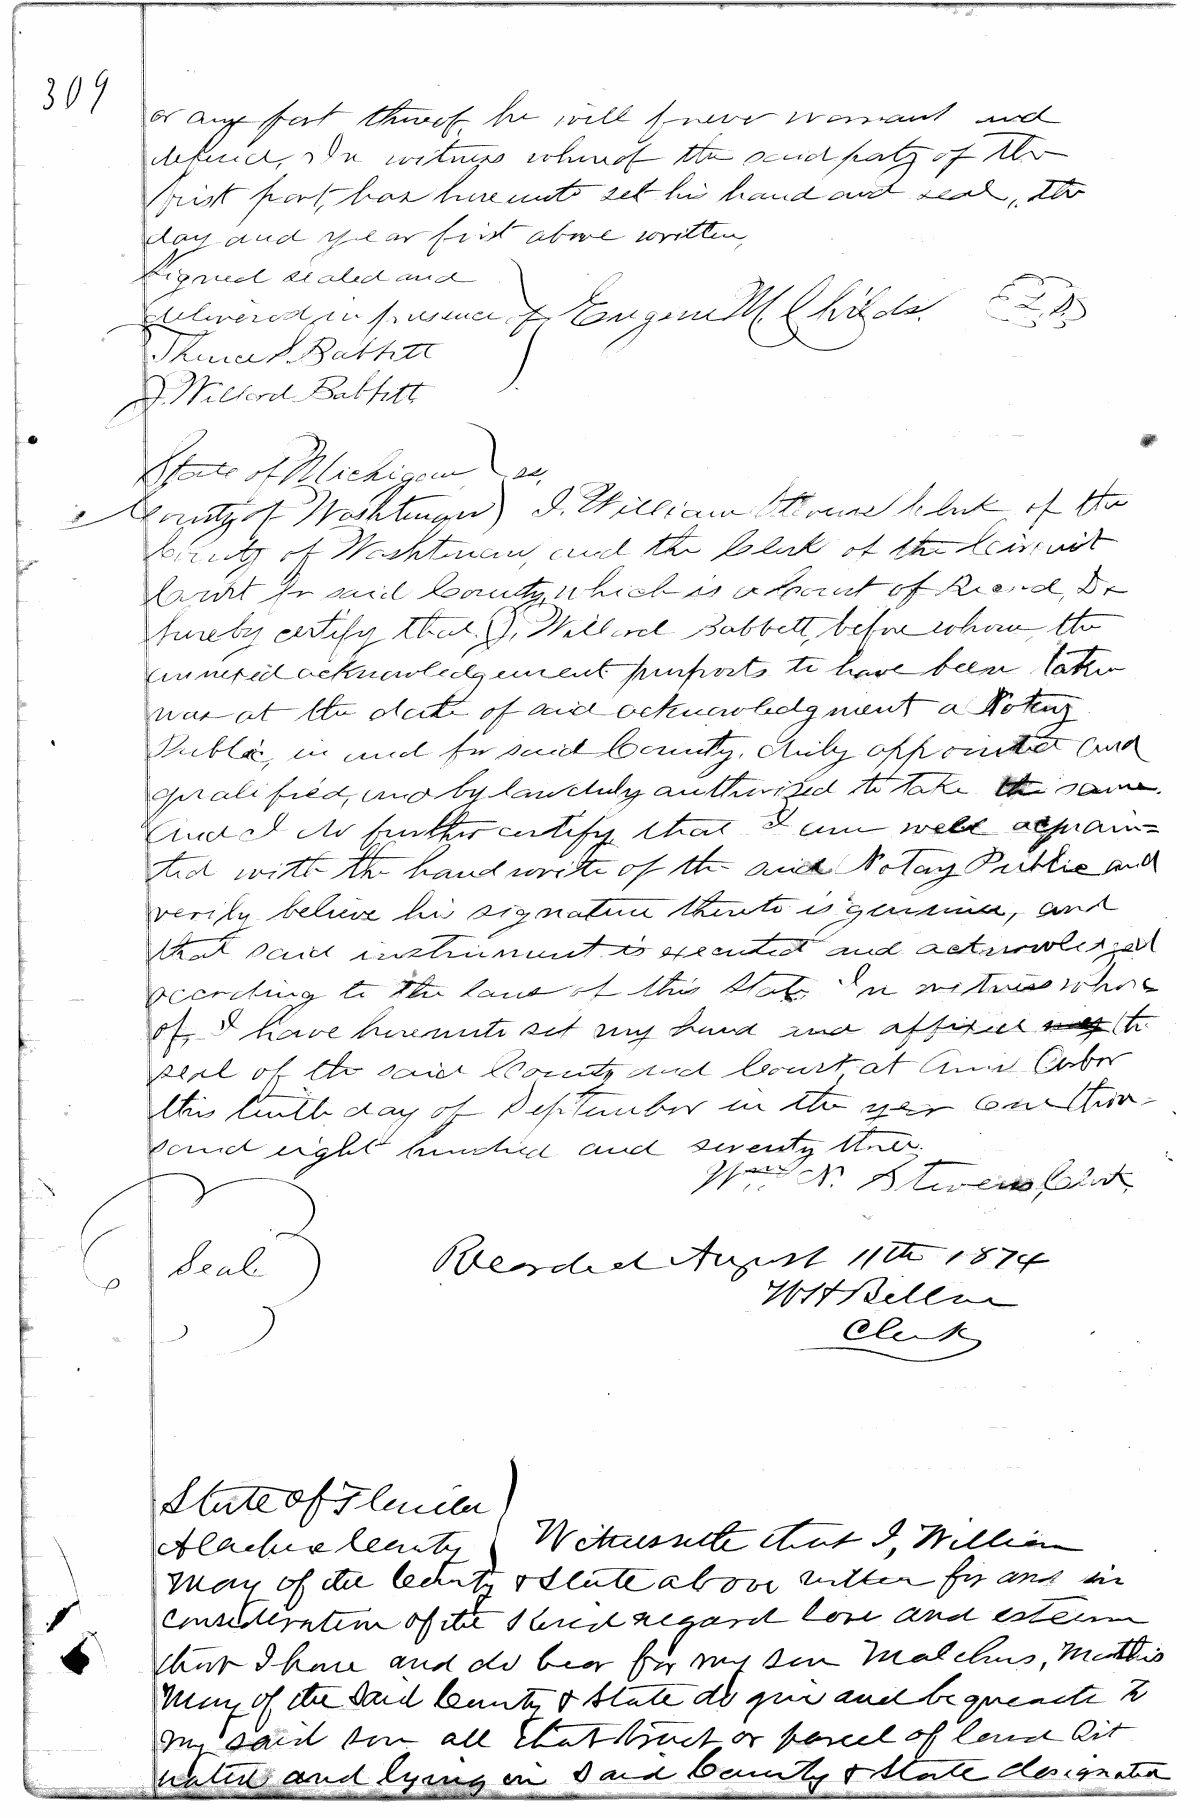 309
or any part thereof, he will forever warrant and
defend, In witness whereof the said party of the
first part, has hereunto set his hand and seal, the
day and year first above written,
Signed sealed and
delivered in presence of Eugene M. Childs. L.S.
Babbitt
J. Willard Babbitt
State of Michigan ss,
County of Washtenaw I. William Stevens Clerk of the
County of Washtenaw, and the Clerk of the Circuit
Court for said County, which is a Court of Record, Do
hereby certify that J. Willard Babbett, before whom the
annexed acknowledgement purports to have been taken
was at the date of said acknowledgment a Notary
Public, in and for said County, duly appointed and
qualified, and by law duly authorized to take the same.
And I do further certify that I am well acquain=
ted with the hand write of the said Notary Public and
verily believe his signature thereto is genuine, and
that said instrument is executed and acknowledged
according to the laws of this State. In witness where
of, I have hereunto set my hand and affixed my the
seal of the said County and Court, at Ann Arbor
this tenth day of September in the year One thou-
sand eight hundred and seventy three.
Wm N. Stevens, Clerk,
Seal
Recorded August 11th 1874
W H Belton
Clerk
State of Florida
Alachua County Witnesseth that I, William
May of the County & State above written for and in
consideration of the kind regard love and esteem
that I have and do bear for my son Malchus, Mathis
May of the said County & State do give and bequeath to
my said son all that tract or parcel of land Sit
uated and lying in said County & State designated